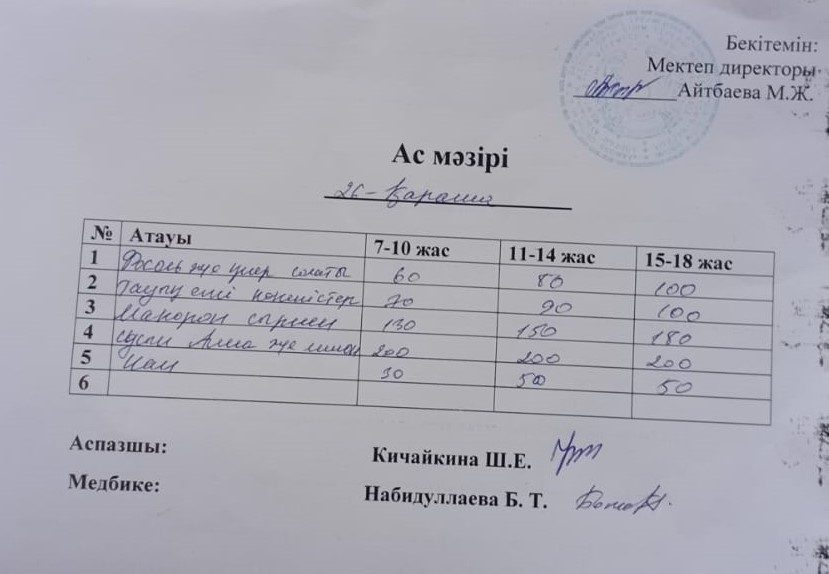 Бекітемін:
Мектеп директоры
Айтбаева М.Ж.
Ас мәзірі
26-Қараша
№ Атауы 7-10 жас 11-14 жас 15-18 жас
1 Фасоль және үшер салаты 60 80 100
2 Тауық еті көкөністер 70 90 100
3 Макорон сырмен 130 150 180
4 сусын Алма және лимон 200 200 200
5 Нан 30 50 50
6
Аспазшы: Кичайкина Ш.Е.
Медбике: Набидуллаева Б. Т.